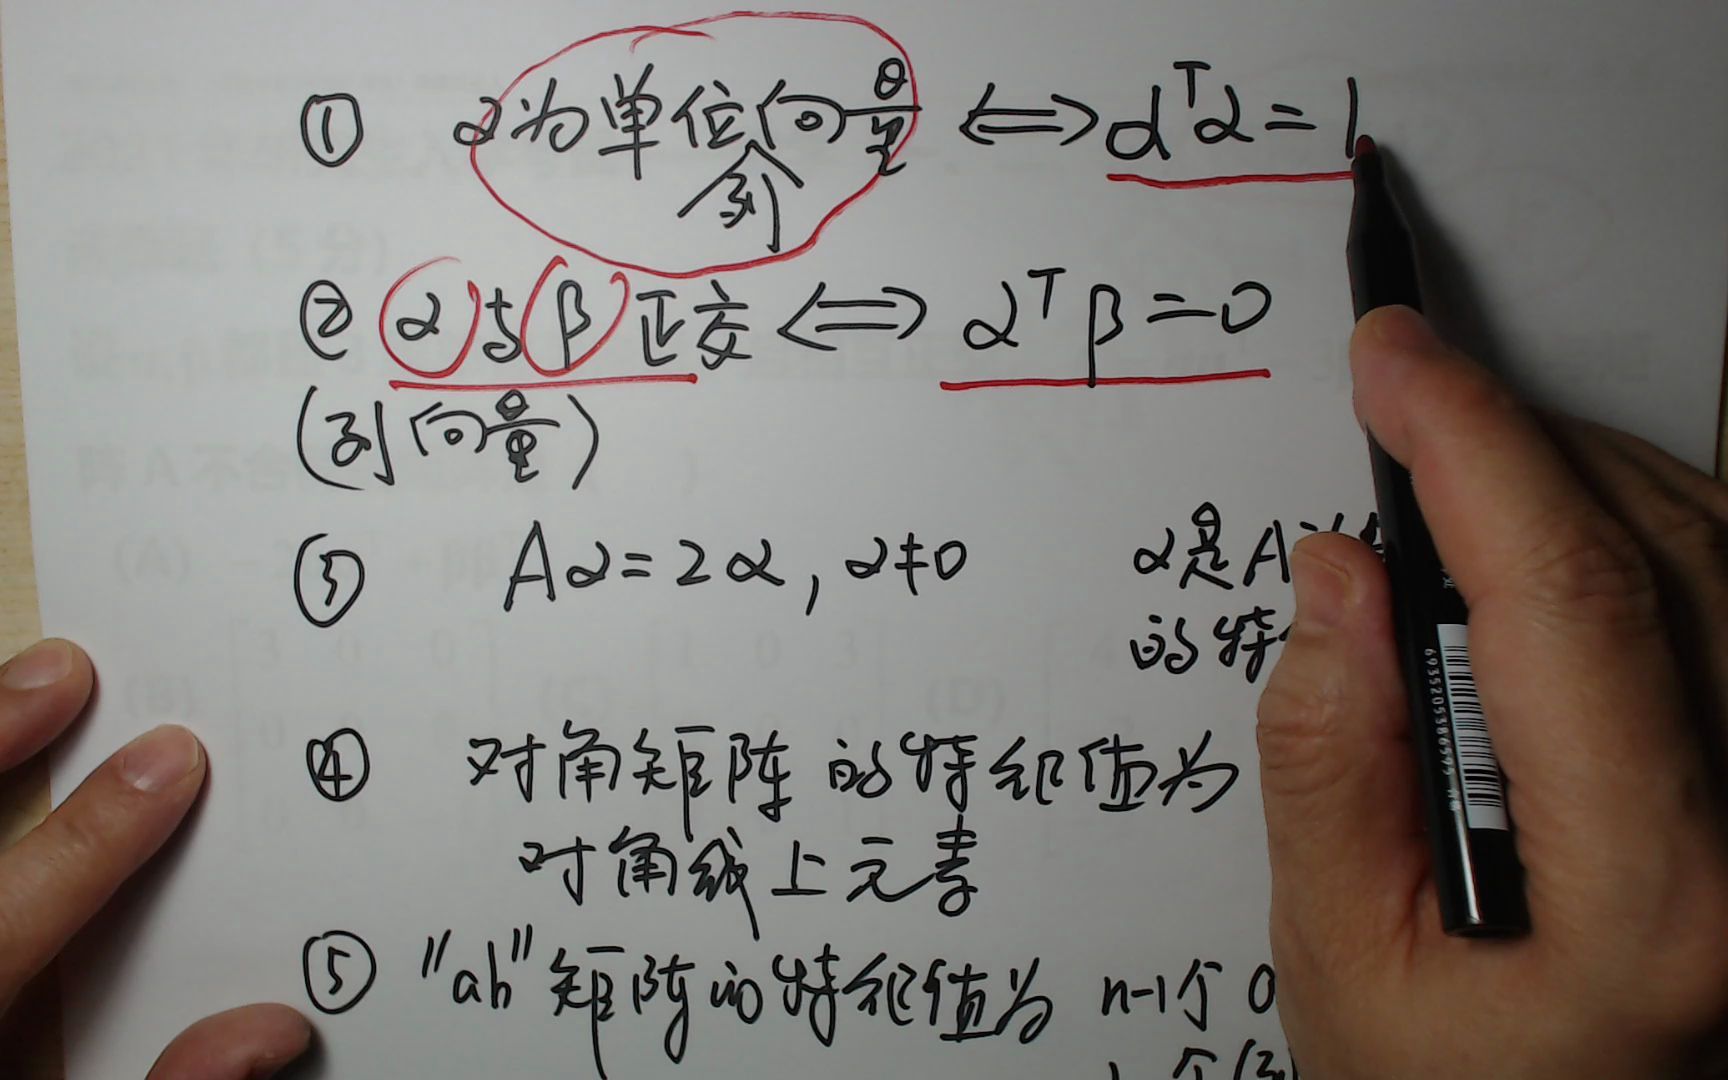 ① α为单位向量 ⟺ αᵀα=1
列
② α与β正交 ⟺ αᵀβ=0
(列向量)
③ Aα=2α, α≠0 α是A
的特
④ 对角矩阵的特征值为
对角线上元素
⑤ "ab"矩阵的特征值为 n-1个0
1个
6935205386595